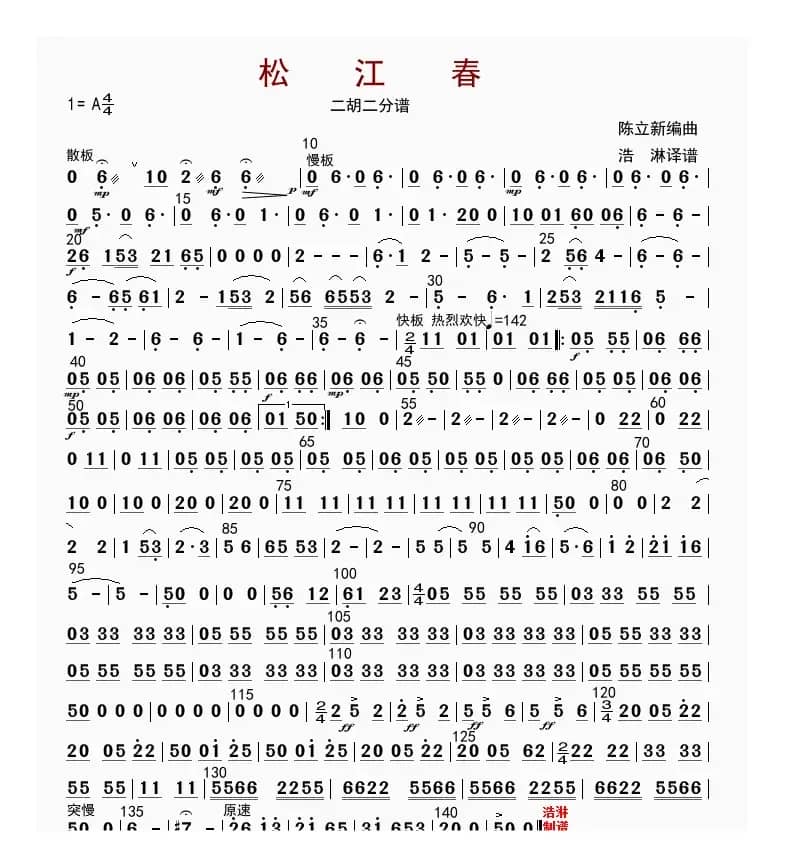 松 江 春
1= A 4/4
二胡二分谱
陈立新编曲
浩 淋译谱
散板 10 慢板
0 6 10 2 6 6 | 0 6· 0 6· | 0 6· 0 6· | 0 6· 0 6· | 0 6· 0 6· |
mp mf p mf mp
15
0 5· 0 6· | 0 6· 0 1· | 0 6· 0 1· | 0 1· 20 0 | 10 01 60 06 | 6 - 6 - |
mf
20 25
26 153 21 65 | 0 0 0 0 | 2 - - - | 6·1 2 - | 5 - 5 - | 2 56 4 - | 6 - 6 - |
f
30
6 - 65 61 | 2 - 153 2 | 56 6553 2 - | 5 - 6· 1 | 253 2116 5 - |
35 快板 热烈欢快♩=142
1 - 2 - | 6 - 6 - | 1 - 6 - | 6 - 6 - | 2/4 11 01 | 01 01 ‖: 05 55 | 06 66 |
f
40 45
05 05 | 06 06 | 05 55 | 06 66 | 06 06 | 05 50 | 55 0 | 06 66 | 05 05 | 06 06 |
mp f mp
50 55 60
05 05 | 06 06 | 06 06 | 06 06 | 1 01 50 :‖ 10 0 | 2 | 2 - | 2 - | 2 - | 0 22 | 0 22 |
f
65 70
0 11 | 0 11 | 05 05 | 05 05 | 05 05 | 06 05 | 06 05 | 06 05 | 06 06 | 06 50 |
75 80
10 0 | 10 0 | 20 0 | 20 0 | 11 11 | 11 11 | 11 11 | 11 11 | 50 0 | 0 0 | 2 2 |
85 90
2 2 | 1 53 | 2·3 | 5 6 | 65 53 | 2 - | 2 - | 5 5 | 5 5 | 4 1̇6 | 5·6 | 1̇ 2̇ | 2̇1̇ 1̇6 |
95 100
5 - | 5 - | 50 0 | 0 0 | 56 12 | 61 23 | 4/4 05 55 55 55 | 03 33 55 55 |
105
03 33 33 33 | 05 55 55 55 | 03 33 33 33 | 03 33 33 33 | 05 55 33 33 |
110
05 55 55 55 | 05 55 55 55 | 03 33 33 33 | 03 33 33 33 | 05 55 33 33 |
115 120
50 0 0 0 | 0 0 0 0 | 0 0 0 0 | 2/4 2 5 2 | 2 5 2 | 5 5 6 | 5 5 6 | 3/4 20 05 2̇2 |
ff ff ff ff
125
20 05 2̇2 | 50 01̇ 25 | 50 01̇ 25 | 20 05 2̇2 | 20 05 62 | 2/4 22 22 | 33 33 |
130
55 55 | 11 11 | 5566 2255 | 6622 5566 | 5566 2255 | 6622 5566 |
突慢 135 原速 140 浩淋
50 0 | 6 - | #7 - | 26 1̇3̇ | 21 35 | 31 653 | 20 0 | 50 0 ‖ 制谱